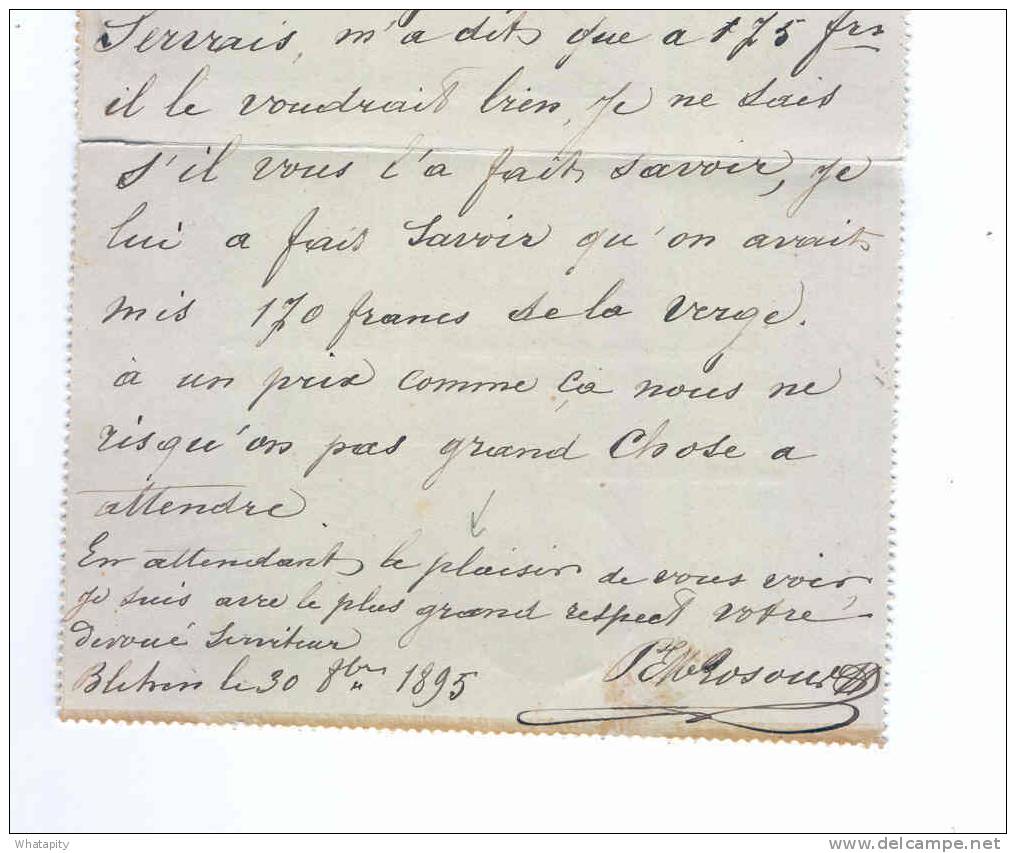 Servais, m'a dit que a 175 frs
il le voudrait bien, je ne sais
s'il vous l'a fait savoir, je
lui a fais savoir qu'on avait
mis 170 francs de la verge.
à un prix comme ça nous ne
risqu'on pas grand chose a
attendre
En attendant le plaisir de vous voir,
je suis avec le plus grand respect votre
devoué serviteur
le 30 8bre 1895
Whatapity
delcampe.net